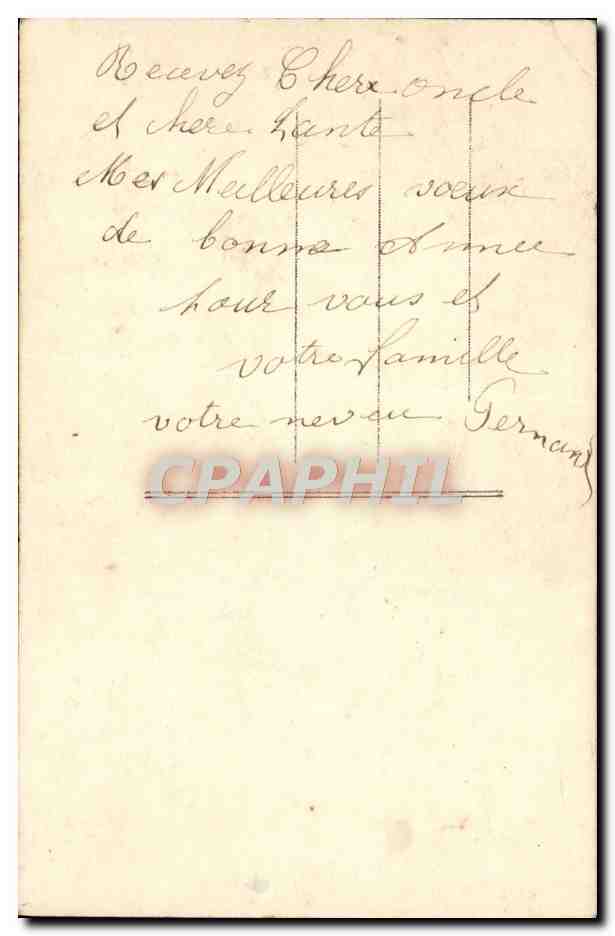 Recevez Cher oncle
et chere tante
Mes Meilleures voeux
de bonne Annee
pour vous et
votre famille
votre neveu Fernand
CPAPHIL